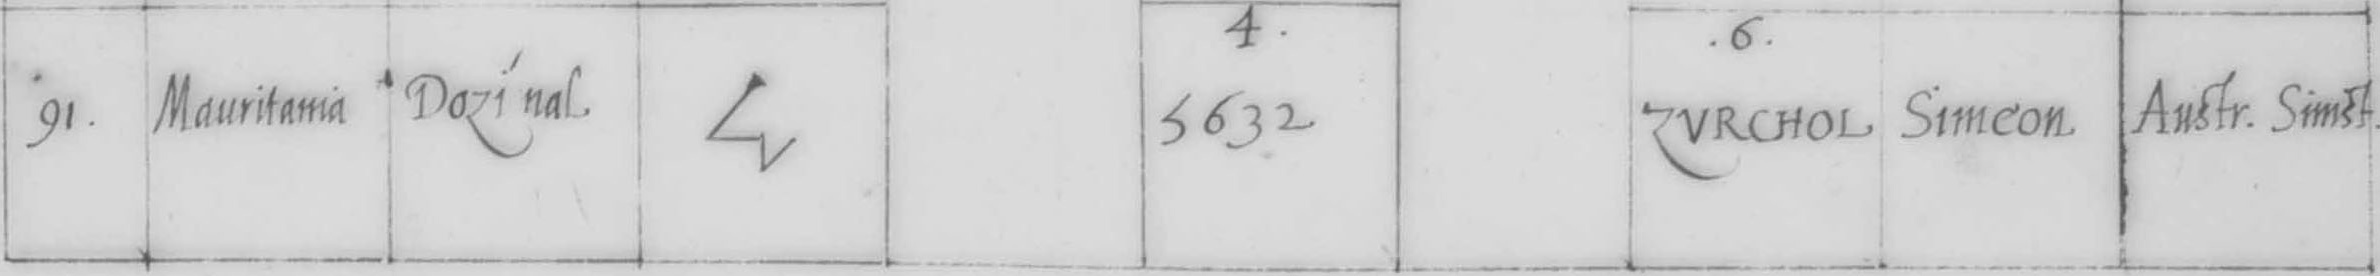 4. .6.
91. Mauritania Dozínal 5632 ZVRCHOL Simeon Austr. Simst.